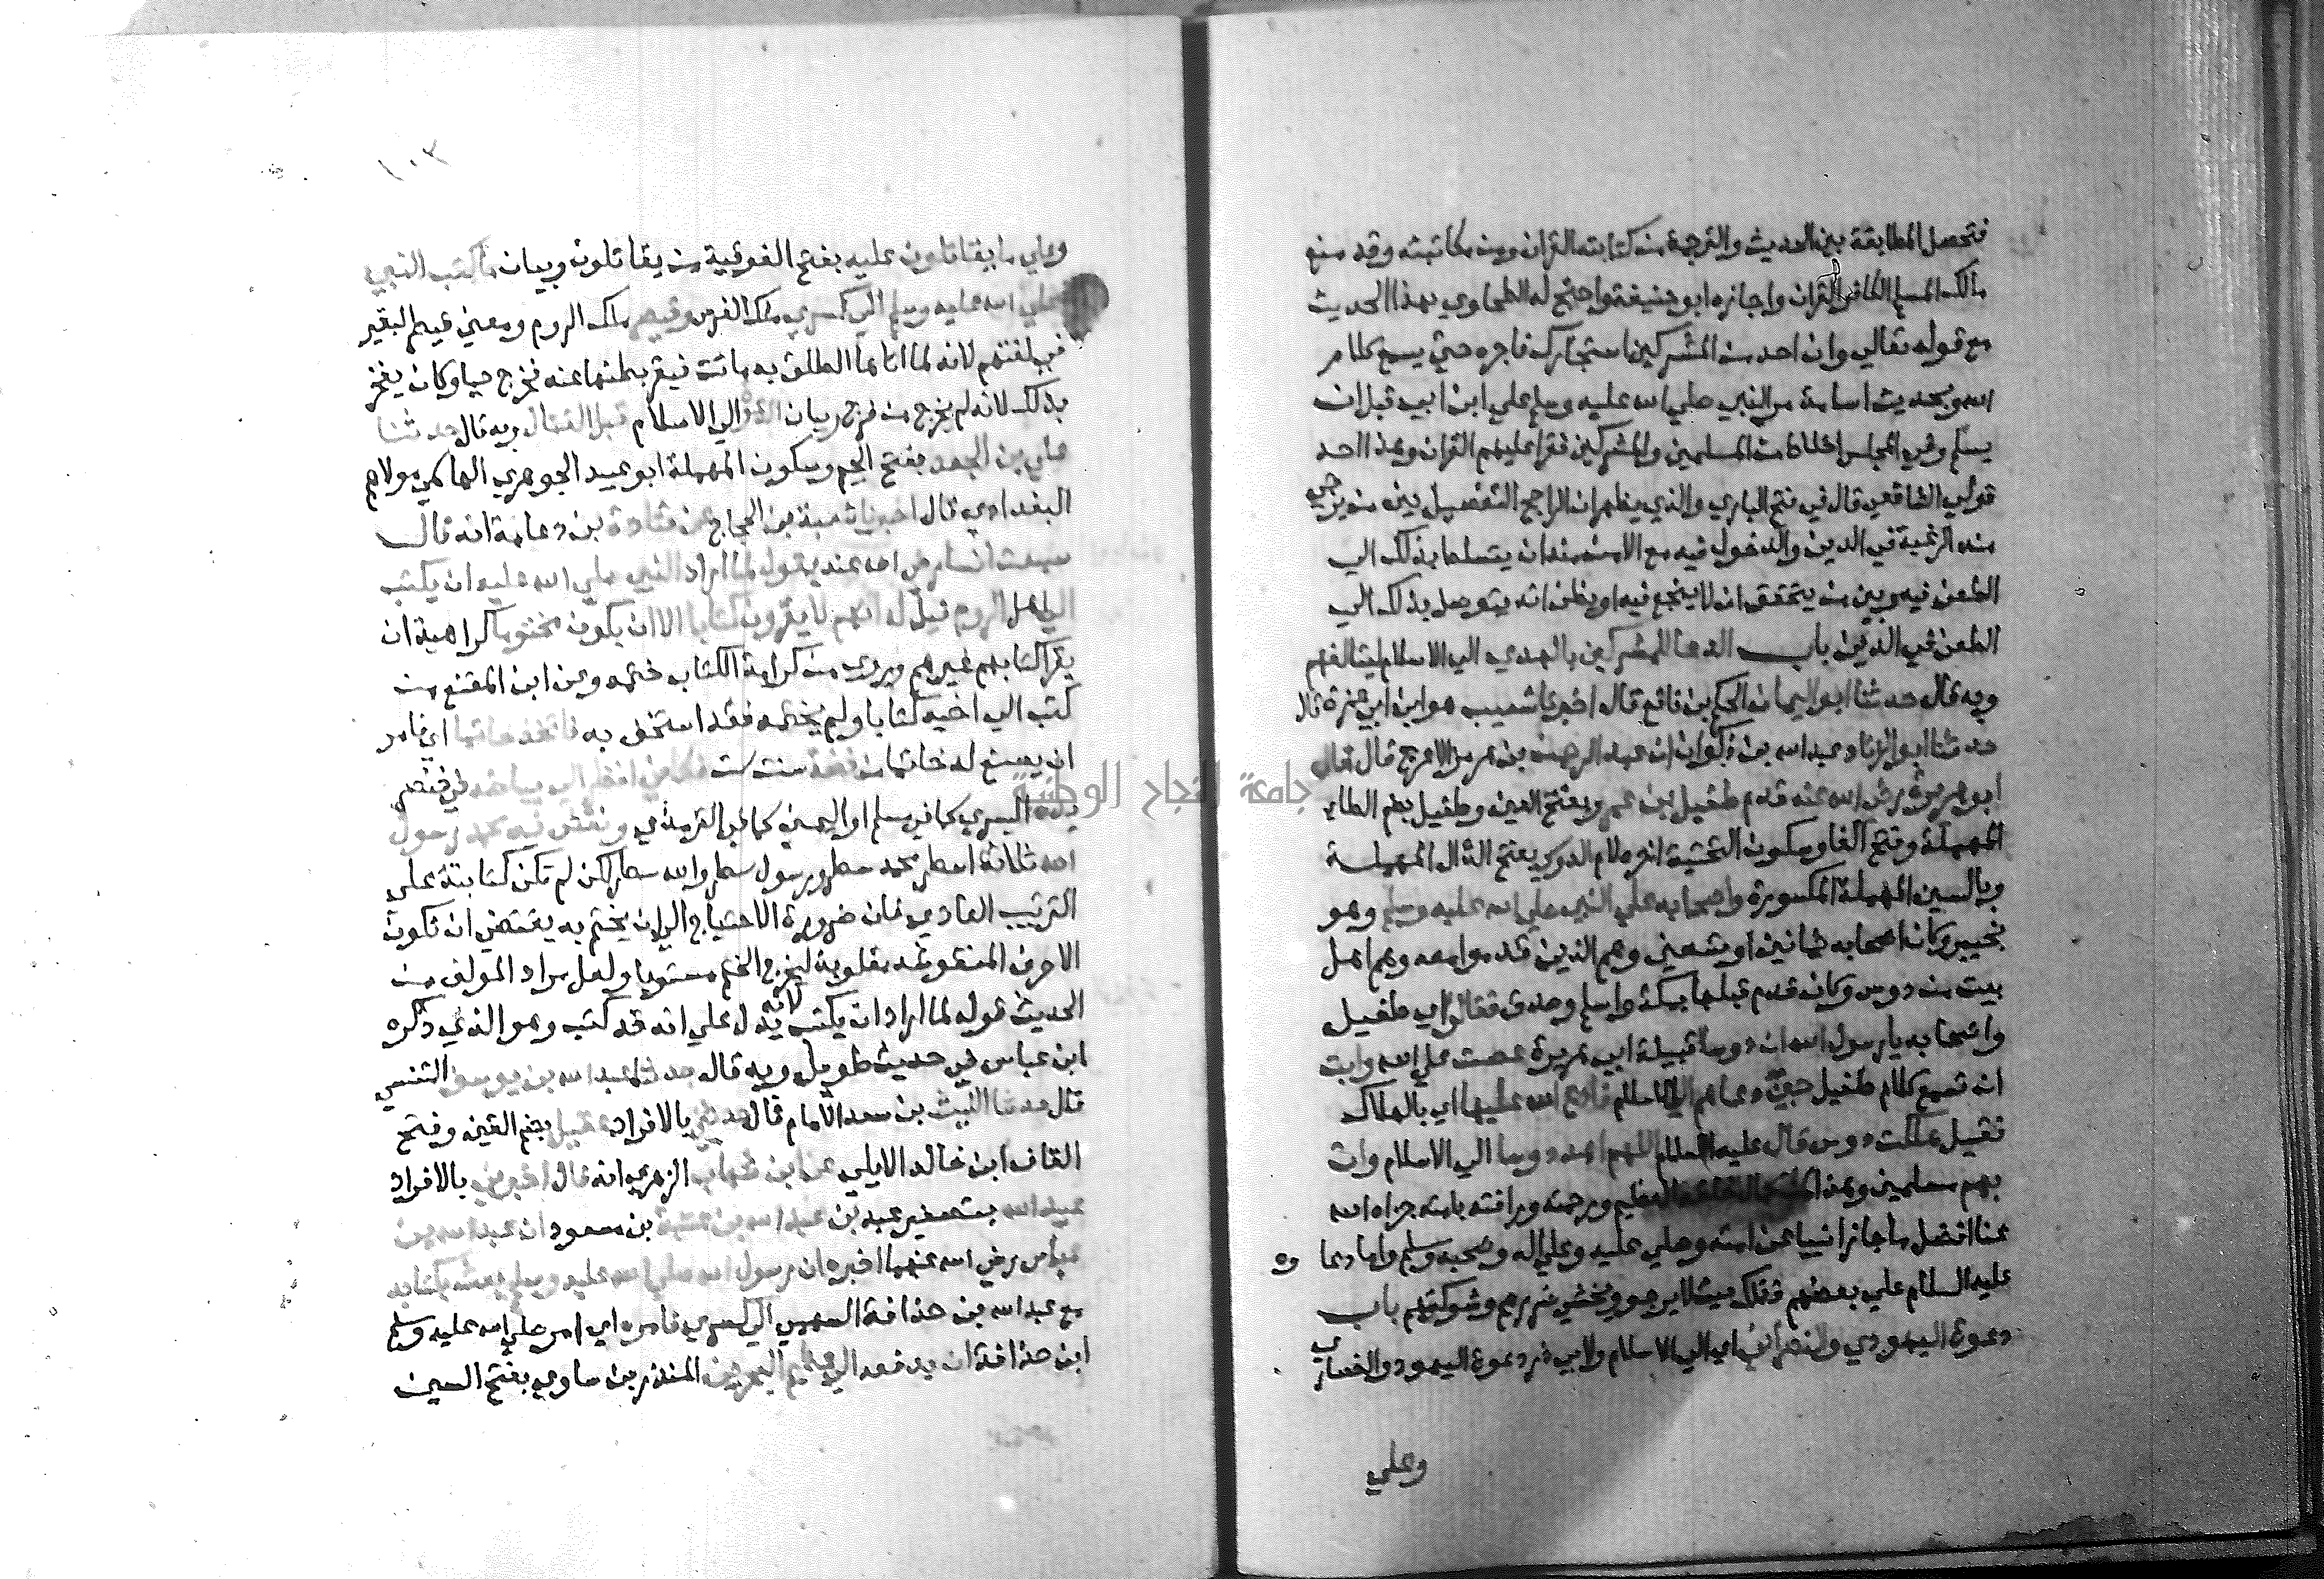 فتحصل المطابقة بين الحديث والترجمة من كتابته القران ومن مكاتبته وقد منع
مالك المسلم الكافر القران واجازه ابو حنيفة واحتج له الطحاوي بهذا الحديث
مع قوله تعالي وان احد من المشركين استجارك فاجره حتي يسمع كلام
الله وبحديث اسامة مر النبي صلي الله عليه وسلم علي ابن ابي قبل ان
يسلم وفي المجلس اخلاط من المسلمين والمشركين فقرا عليهم القران وهذا احد
قولي الشافعي قال في فتح الباري والذي يظهر ان الراجح التفصيل بين من يرجي
منه الرغبة في الدين والدخول فيه مع الامن منه ان يتسلط بذلك الي
الطعن فيه وبين من يتحقق ان لا ينجع فيه او يظن انه يتوصل بذلك الي
الطعن في الدين باب الدعا للمشركين بالهدي الي الاسلام ليتالفهم
وبه قال حدثنا ابو اليمان الحكم بن نافع قال اخبرنا شعيب هو ابن ابي حمزة قال
حدثنا ابو الزناد عبد الله بن ذكوان ان عبد الرحمن بن هرمز الاعرج قال قال
ابو هريرة رضي الله عنه قدم طفيل بن عمرو بفتح العين وطفيل بضم الطاء
المهملة وفتح الفا وسكون التحتية اخره لام الدوسي بفتح الدال المهملة
وبالسين المهملة المكسورة واصحابه علي النبي صلي الله عليه وسلم وهو
بخيبر وكان اصحابه ثمانين او تسعين وهم الذين قدموا معه وهم اهل
بيت من دوس وكان قدم قبلها بمكة واسلم وصدق فقالوا اي طفيل
واصحابه يا رسول الله ان دوسا قبيلة ابي هريرة عصت علي الله وابت
ان تسمع كلام طفيل حين دعاهم الي الاسلام فادع الله عليها اي بالهلاك
فقيل هلكت دوس قال عليه السلام اللهم اهد دوسا الي الاسلام وات
بهم مسلمين وهذا من العظيم ورحمته ورافته بامته جزاه الله
عنا افضل ما جازا نبيا عن امته وصلي عليه وعلي اله وصحبه وسلم واما دعاوه
عليه السلام علي بعضهم فذلك حيث لا يرجو ويخشي ضررهم وشوكتهم باب
دعوة اليهودي والنصراني اي الي الاسلام ولابي ذر دعوة اليهود والنصاري
وعلي
١٠٣
وعلي ما يقاتلون عليه بفتح الفوقية من يقاتلون وبيان ما كتب النبي
صلي الله عليه وسلم الي كسري ملك الفرس وقيصر ملك الروم ومعني قيصر البقير
في لغتهم لانه لما اتاها الطلق به ماتت فبقر بطنها عنه فخرج حيا وكان يفخر
بذلك لانه لم يخرج من فرج وبيان الدعوة الي الاسلام قبل القتال وبه قال حدثنا
علي بن الجعد بفتح الجيم وسكون المهملة ابو عبيد الجوهري الهاشمي مولاهم
البغدادي قال اخبرنا شعبة بن الحجاج عن قتادة بن دعامة انه قال
سمعت انسا رضي الله عنه يقول لما اراد النبي صلي الله عليه ان يكتب
الي اهل الروم قيل له انهم لا يقرون كتابا الا ان يكون مختوما كراهية ان
يقرا كتابهم غيرهم وروي من كرامة الكتاب ختمه وعن ابن المقفع من
كتب الي اخيه كتابا ولم يختمه فقد استخف به فاتخذ خاتما اي فامر
ان يصنع له خاتما من فضة سنة ست فكاني انظر الي بياضه في خنصر
يده اليسري كما في مسلم او اليمني كما في الترمذي ونقش فيه محمد رسول
الله ثلاثة اسطر محمد سطر ورسول سطر والله سطر لكن لم تكن كتابته علي
الترتيب العادي فان ضرورة الاحتياج الي ان يختم به يقتضي ان تكون
الاحرف المنقوشة مقلوبة ليخرج الختم مستويا ولعل مراد المولف من
الحديث قوله لما اراد ان يكتب لانه يدل علي انه قد كتب وهو الذي ذكره
ابن عباس في حديث طويل وبه قال حدثنا عبد الله بن يوسف التنسي
قال حدثنا الليث بن سعد الامام قال حدثني بالافراد عقيل بضم العين وفتح
القاف ابن خالد الايلي عن ابن شهاب الزهري انه قال اخبرني بالافراد
عبيد الله بتصغير عبد بن عبد الله بن عتبة بن مسعود ان عبد الله بن
عباس رضي الله عنهما اخبره ان رسول الله صلي الله عليه وسلم بعث بكتابه
مع عبد الله بن حذافة السهمي الي كسري فامره اي امر صلي الله عليه وسلم
ابن حذافة ان يدفعه الي عظيم البحرين المنذر بن ساوي بفتح السين
جامعة النجاح الوطنية